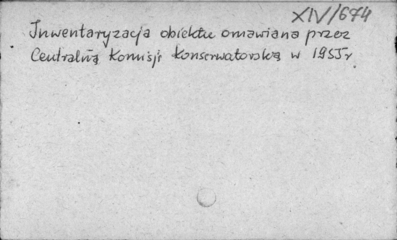 XIV/674
Inwentaryzacja obiektu omawiana przez
Centralną Komisję Konserwatorską w 1955 r